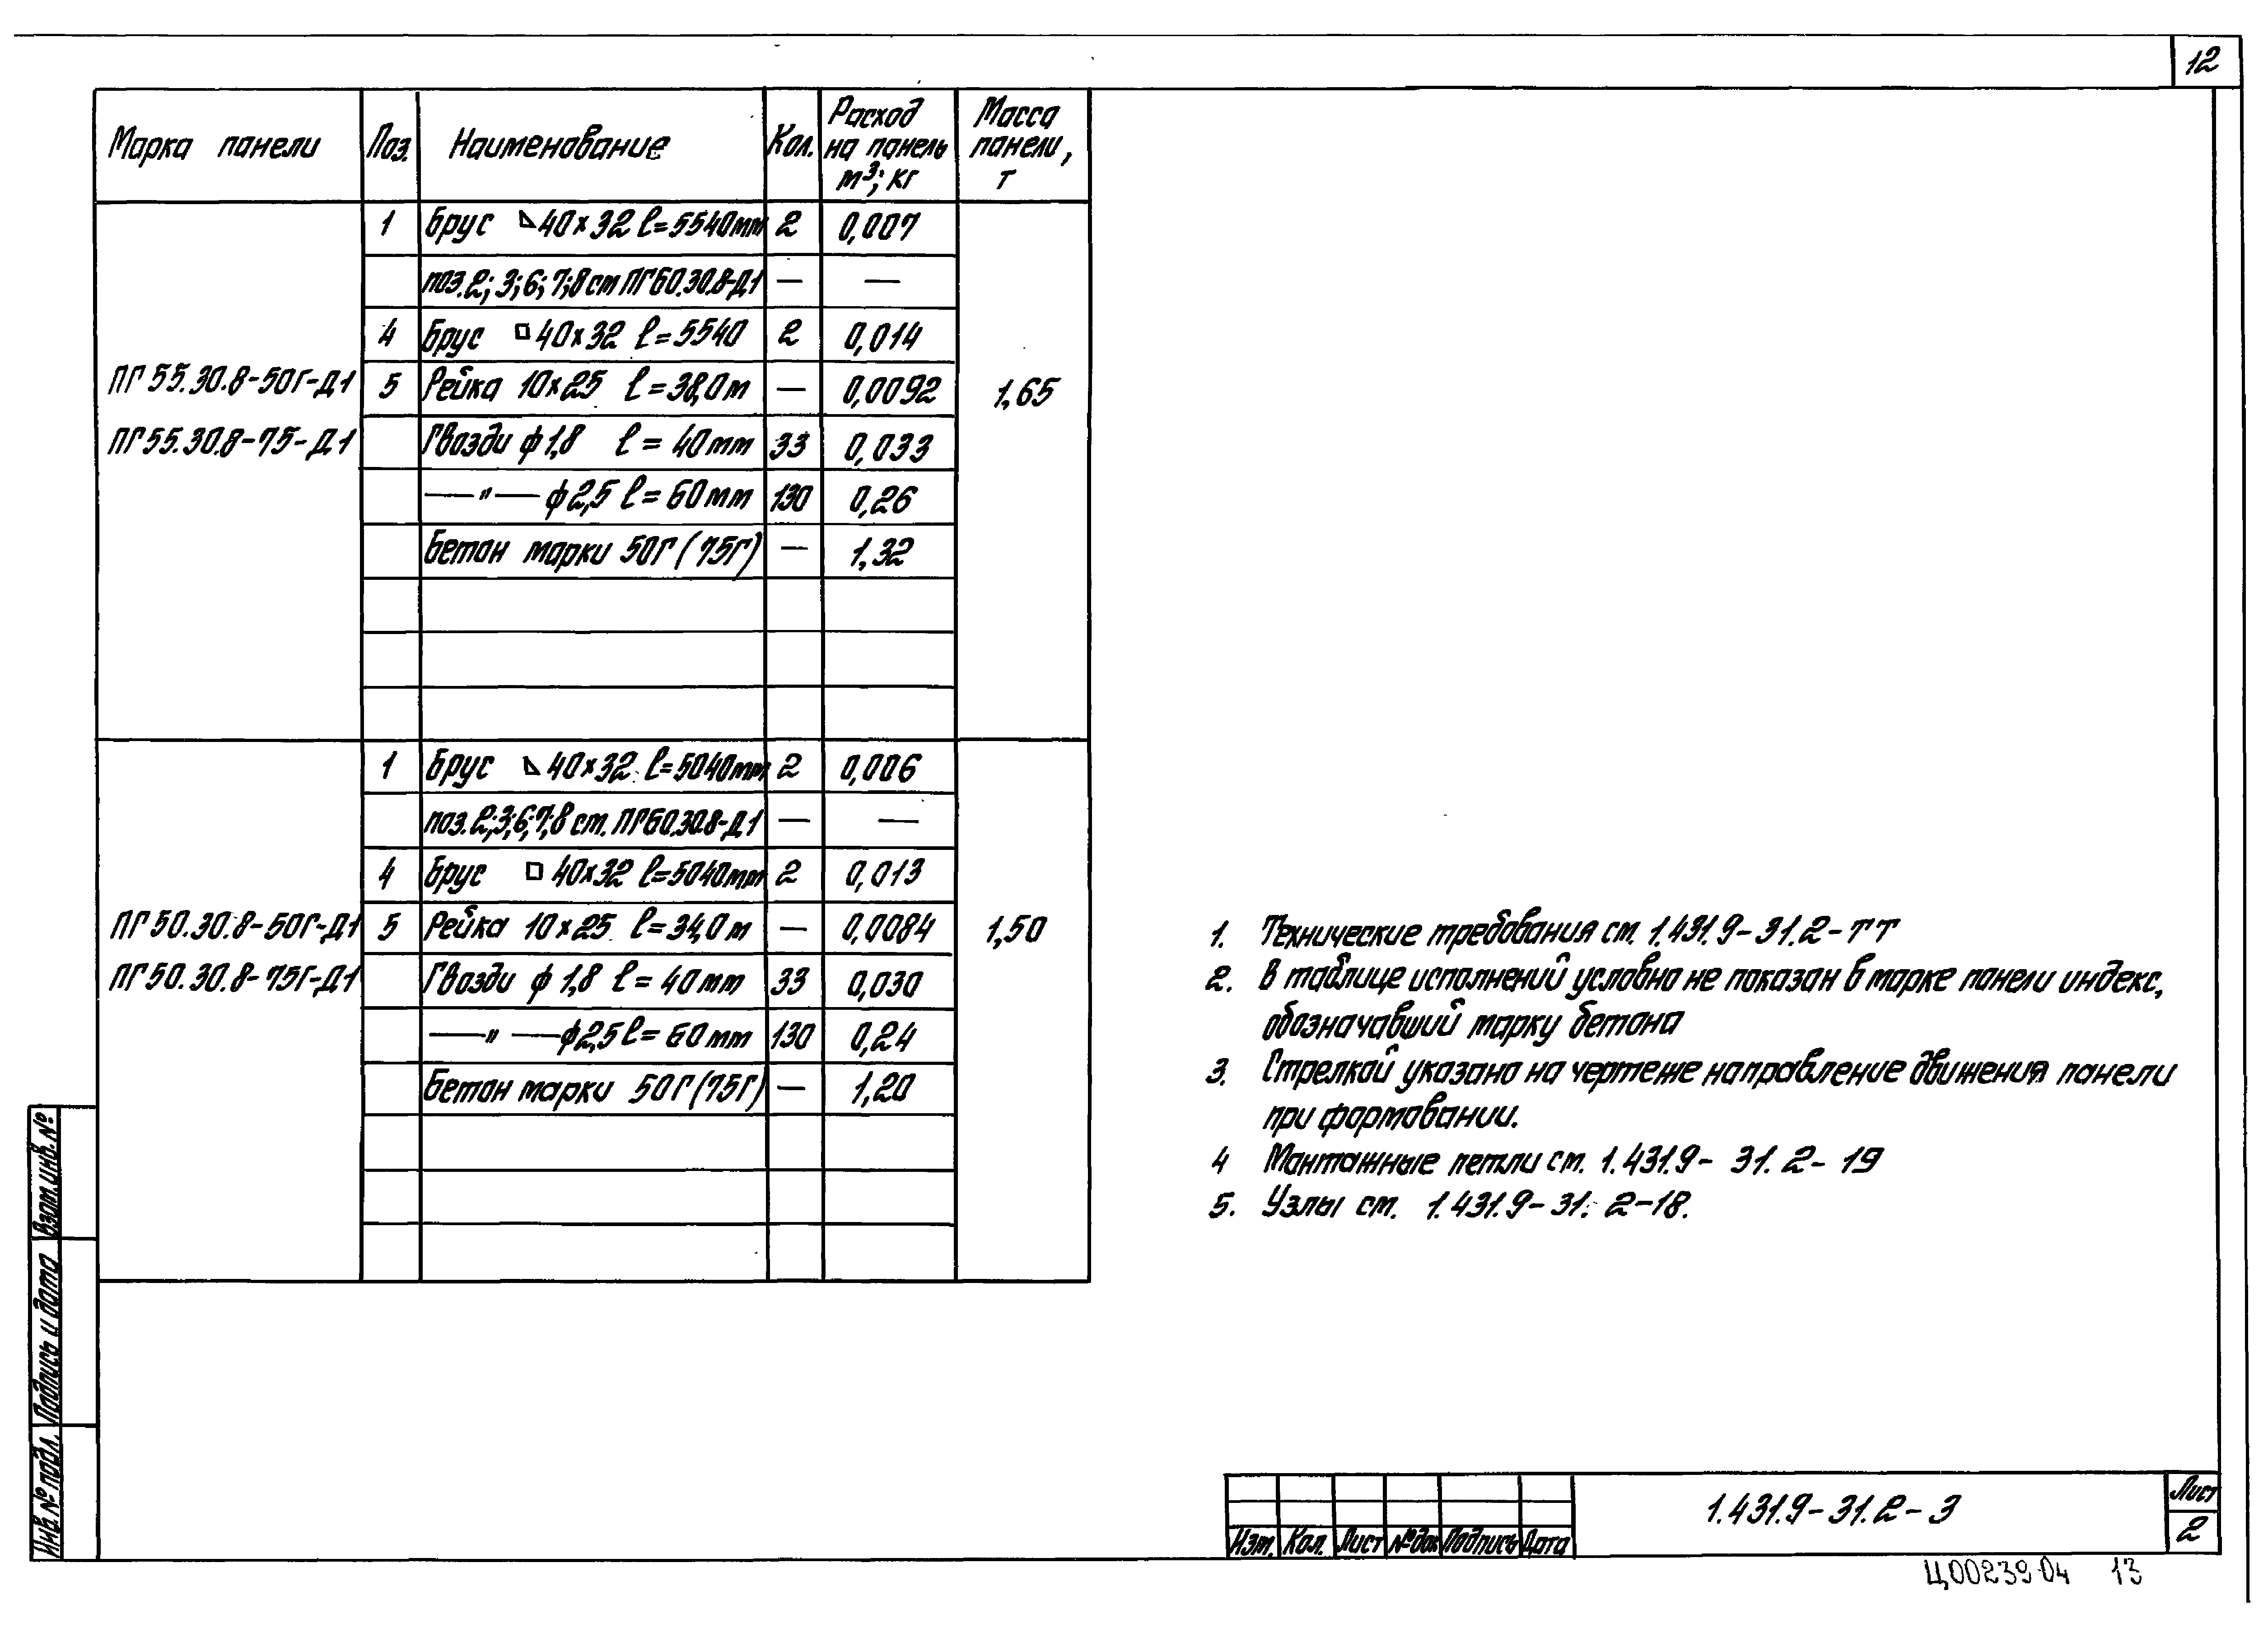 12
Марка панели | Поз. | Наименование | Кол. | Расход на панель м³; кг | Масса панели, т
1 | Брус ◺40×32 ℓ=5540мм | 2 | 0,007
поз.2; 3; 6; 7; 8 см ПГ60.30.8-Д1 | — | —
4 | Брус □ 40×32 ℓ=5540 | 2 | 0,014
ПГ55.30.8-50Г-Д1 | 5 | Рейка 10×25 ℓ=38,0м | — | 0,0092 | 1,65
ПГ55.30.8-75-Д1 | Гвозди ф1,8 ℓ = 40мм | 33 | 0,033
—"— ф2,5 ℓ = 60мм | 130 | 0,26
Бетон марки 50Г (75Г) | — | 1,32
1 | Брус ◺ 40×32 ℓ=5040мм | 2 | 0,006
поз. 2;3;6;7;8 см. ПГ60.30.8-Д1 | — | —
4 | Брус □ 40×32 ℓ=5040мм | 2 | 0,013
ПГ50.30.8-50Г-Д1 | 5 | Рейка 10×25 ℓ=34,0м | — | 0,0084 | 1,50
ПГ50.30.8-75Г-Д1 | Гвозди ф 1,8 ℓ = 40мм | 33 | 0,030
—"— ф2,5 ℓ = 60мм | 130 | 0,24
Бетон марки 50Г(75Г) | — | 1,20
1. Технические требования см. 1.431.9-31.2-ТТ
2. В таблице исполнений условно не показан в марке панели индекс,
обозначавший марку бетона
3. Стрелкой указано на чертеже направление движения панели
при формовании.
4 Монтажные петли см. 1.431.9- 31.2-19
5. Узлы см. 1.431.9-31.2-18.
Взам.инв.№
Подпись и дата
Инв.№ подл.
Изм. Кол. Лист №док Подпись Дата
1.431.9-31.2-3
Лист
2
Ц00239-04 13